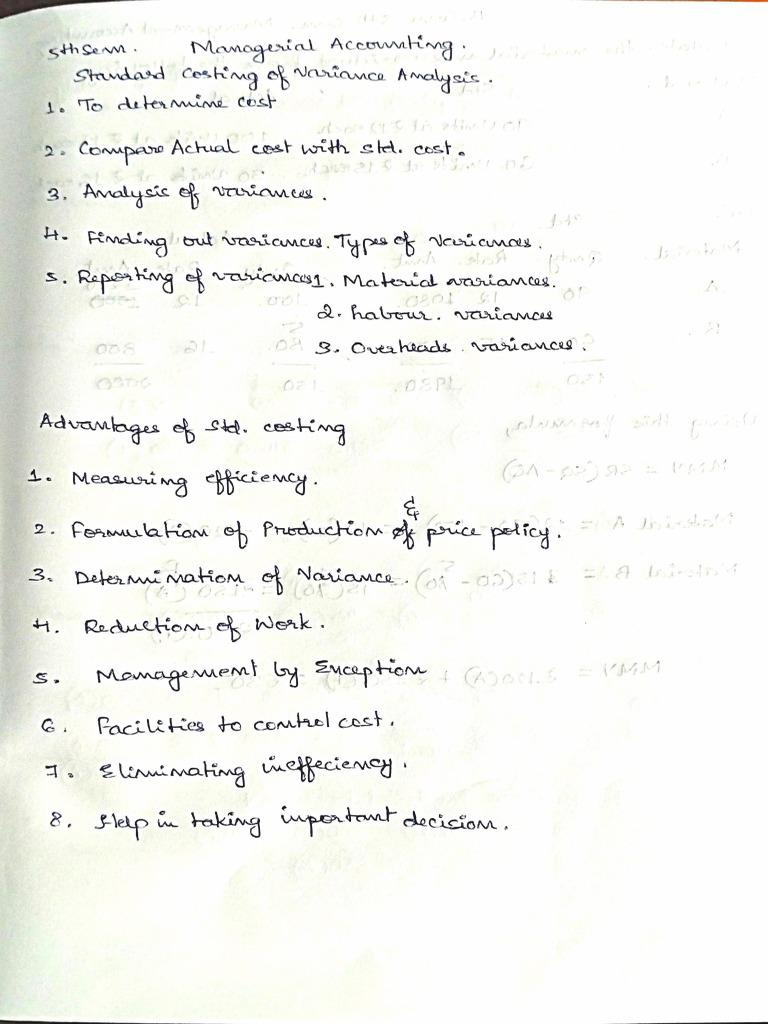 5th Sem. Managerial Accounting.
Standard Costing of Variance Analysis.
1. To determine cost
2. Compare Actual cost with std. cost.
3. Analysis of variances.
4. Finding out variances. Types of Variances.
5. Reporting of variances 1. Material variances.
2. Labour. variances
3. Overheads. variances.
Advantages of std. costing
1. Measuring efficiency.
&
2. Formulation of Production price policy.
3. Determination of Variance.
4. Reduction of Work.
5. Management by Exception
6. Facilities to control cost.
7. Eliminating ineffeciency.
8. Help in taking important decision.